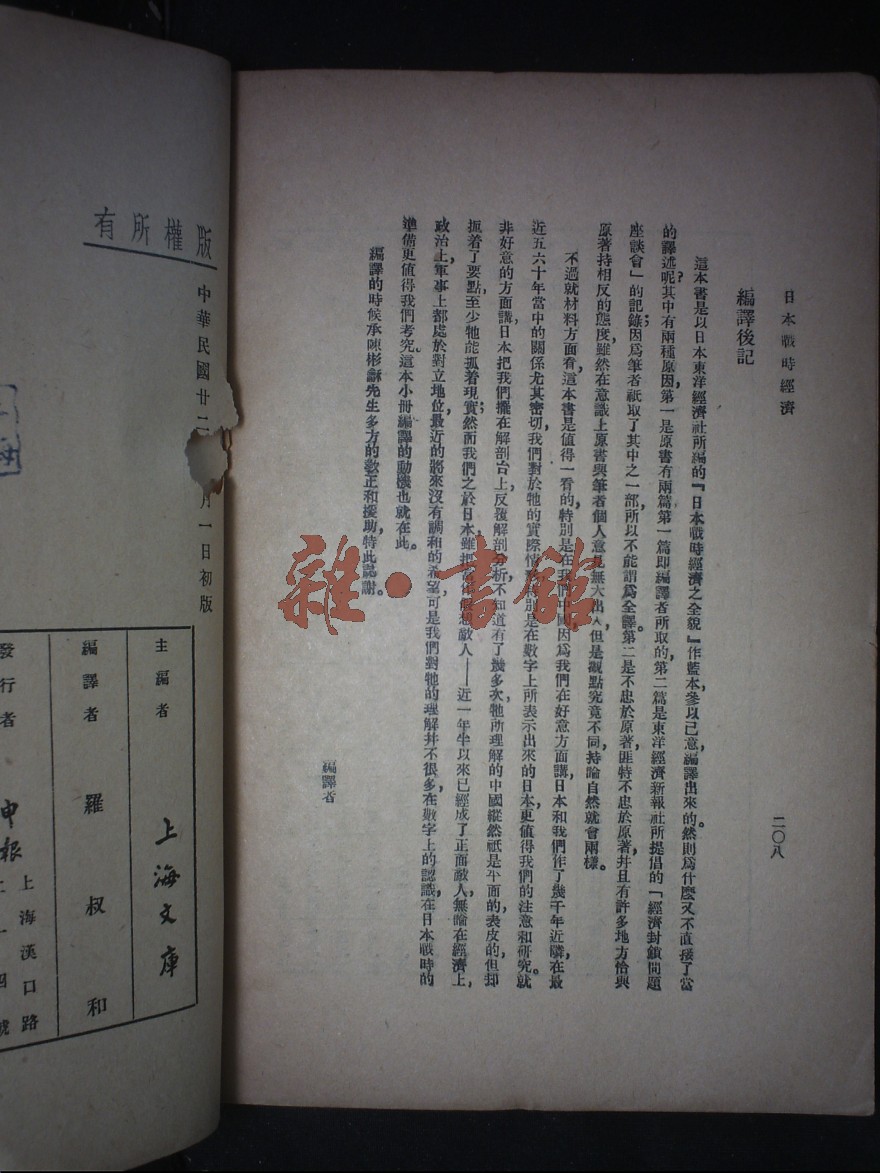 日本戰時經濟
二〇八
編譯後記
這本書是以日本東洋經濟社所編的『日本戰時經濟之全貌』作藍本，參以己意，編譯出來的。然則爲什麼又不直接了當
的譯述呢？其中有兩種原因，第一是原書有兩篇第一篇卽編譯者所取的，第二篇是東洋經濟新報社所提倡的「經濟封鎖問題
座談會」的記錄；因爲筆者祇取了其中之一部，所以不能謂爲全譯。第二是不忠於原著，匪特不忠於原著，幷且有許多地方恰與
原著持相反的態度，雖然在意識上原書與筆者個人意見無大出入，但是觀點究竟不同，持論自然就會兩樣。
不過就材料方面看，這本書是值得一看的，特別是在我們中國，因爲我們在好意方面講，日本和我們作了幾千年近隣，在最
近五六十年當中的關係尤其密切，我們對於牠的實際情形特別是在數字上所表示出來的日本，更值得我們的注意和研究。就
非好意的方面講，日本把我們擺在解剖台上反覆解剖分析，不知道有了幾多次，牠所理解的中國縱然祇是平面的、表皮的，但却
抓着了要點，至少牠能抓着現實；然而我們之於日本，雖把當作假想敵人——近一年半以來已經成了正面敵人，無論在經濟上，
政治上，軍事上都處於對立地位，最近的將來沒有調和的希望，可是我們對牠的理解幷不很多，在數字上的認識，在日本戰時的
準備更值得我們考究。這本小冊編譯的動機也就在此。
編譯的時候承陳彬龢先生多方的敎正和援助，特此誌謝。
編譯者
雜·書館
版權所有
中華民國廿二 月一日初版
主編者 上海文庫
編譯者 羅叔和
發行者 申報
上海漢口路